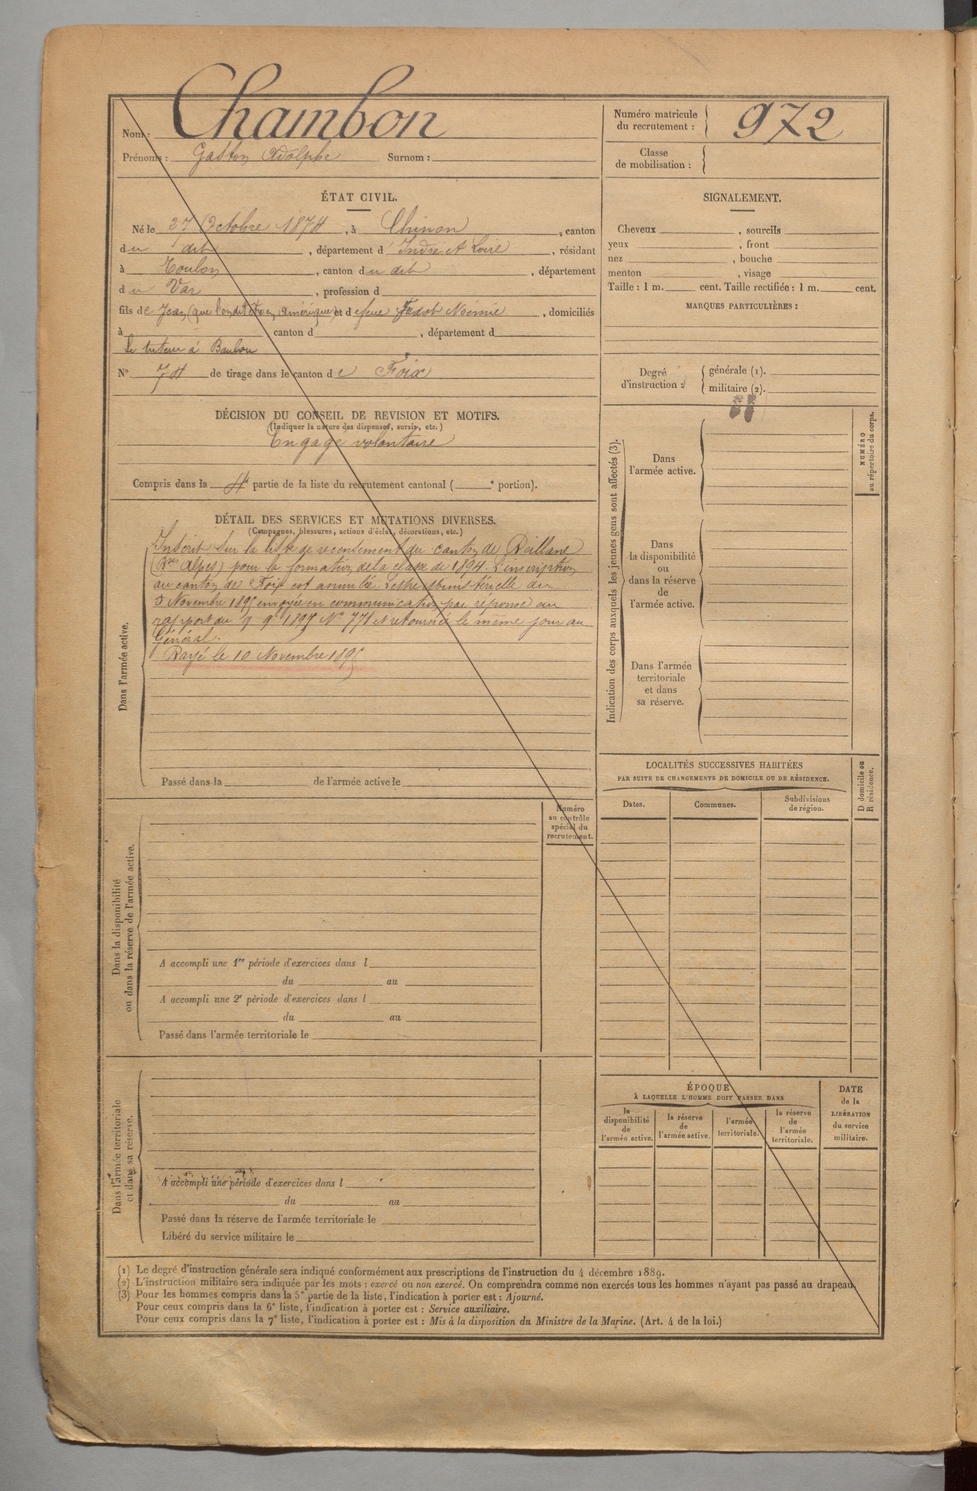 Nom : Chambon
Prénoms : Gaston Adolphe Surnom :
Numéro matricule
du recrutement : 972
Classe
de mobilisation :
ÉTAT CIVIL.
Né le 27 Octobre 1874, à Chinon, canton
du dit, département d'Indre et Loire, résidant
à Toulon, canton du dit, département
du Var, profession d
fils de Jean (que l'on dit en Amérique) et de feue Noémie, domiciliés
à canton d, département d
Le tuteur à Baulou
N° 74 de tirage dans le canton de Foix
DÉCISION DU CONSEIL DE REVISION ET MOTIFS.
(Indiquer la nature des dispenses, sursis, etc.)
Engagé volontaire
Compris dans la 4e partie de la liste du recrutement cantonal ( e portion).
DÉTAIL DES SERVICES ET MUTATIONS DIVERSES.
(Campagnes, blessures, actions d'éclat, décorations, etc.)
Inscrit sur la liste de recensement du canton de Reillane
(Bses Alpes) pour la formation de la classe de 1894. L'inscription
au canton de Foix est annulée. Lettre Ministérielle du
5 Novembre 1895 envoyée en communication par réponse au
rapport du 9 9bre 1895 N° 771 et retournée le même jour au
Général.
Rayé le 10 Novembre 1895
Dans l'armée active.
Passé dans la de l'armée active le
Numéro
au contrôle
spécial du
recrutement.
Dans la disponibilité
ou dans la réserve de l'armée active.
A accompli une 1re période d'exercices dans l
du au
A accompli une 2e période d'exercices dans l
du au
Passé dans l'armée territoriale le
Dans l'armée territoriale
et dans sa réserve.
A accompli une période d'exercices dans l
du au
Passé dans la réserve de l'armée territoriale le
Libéré du service militaire le
SIGNALEMENT.
Cheveux, sourcils
yeux, front
nez, bouche
menton, visage
Taille : 1 m. cent. Taille rectifiée : 1 m. cent.
MARQUES PARTICULIÈRES :
Degré
d'instruction :
générale (1).
militaire (2).
Indication des corps auxquels les jeunes gens sont affectés (3).
NUMÉRO
au répertoire du corps.
Dans
l'armée active.
Dans
la disponibilité
ou
dans la réserve
de
l'armée active.
Dans l'armée
territoriale
et dans
sa réserve.
LOCALITÉS SUCCESSIVES HABITÉES
PAR SUITE DE CHANGEMENTS DE DOMICILE OU DE RÉSIDENCE.
Dates.
Communes.
Subdivisions
de région.
D domicile ou
R résidence.
ÉPOQUE
À LAQUELLE L'HOMME DOIT PASSER DANS
la
disponibilité
de
l'armée active.
la réserve
de
l'armée active.
l'armée
territoriale.
la réserve
de
l'armée
territoriale.
DATE
de la
LIBÉRATION
du service
militaire.
(1) Le degré d'instruction générale sera indiqué conformément aux prescriptions de l'instruction du 4 décembre 1889.
(2) L'instruction militaire sera indiquée par les mots : exercé ou non exercé. On comprendra comme non exercés tous les hommes n'ayant pas passé au drapeau.
(3) Pour les hommes compris dans la 5e partie de la liste, l'indication à porter est : Ajourné.
Pour ceux compris dans la 6e liste, l'indication à porter est : Service auxiliaire.
Pour ceux compris dans la 7e liste, l'indication à porter est : Mis à la disposition du Ministre de la Marine. (Art. 4 de la loi.)